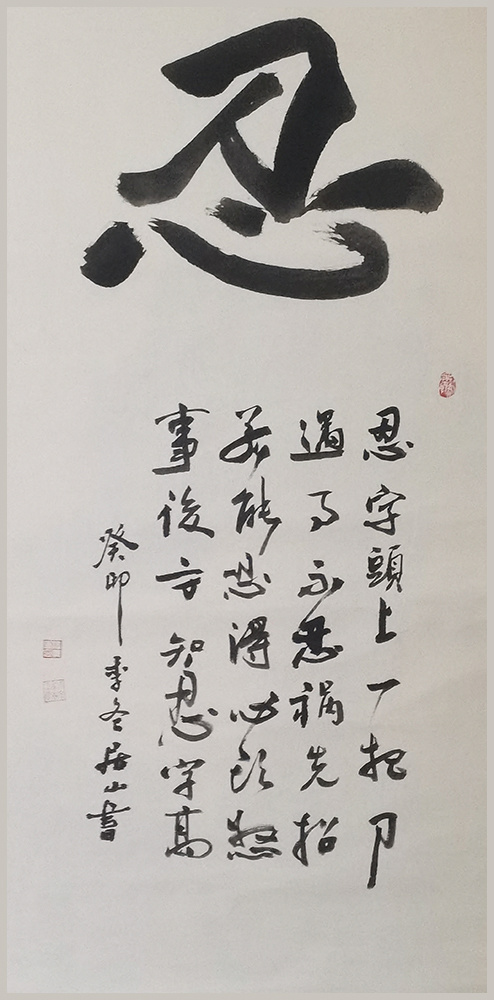 忍
忍字頭上一把刀
遇事不忍禍先招
若能忍得心頭
事後方知忍字高
癸卯季冬居山書